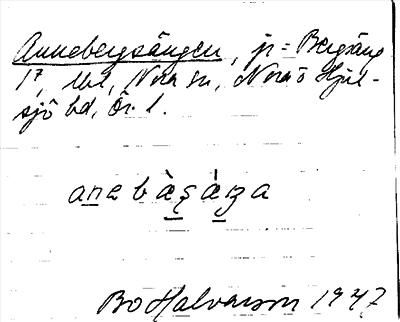 Annebergsängen, jr = Bergäng
1⁷, Nora sn, Nora o Hjul-
sjö bd, Ör. l.
anebàṣàŋa
Bo Halvarson 1947